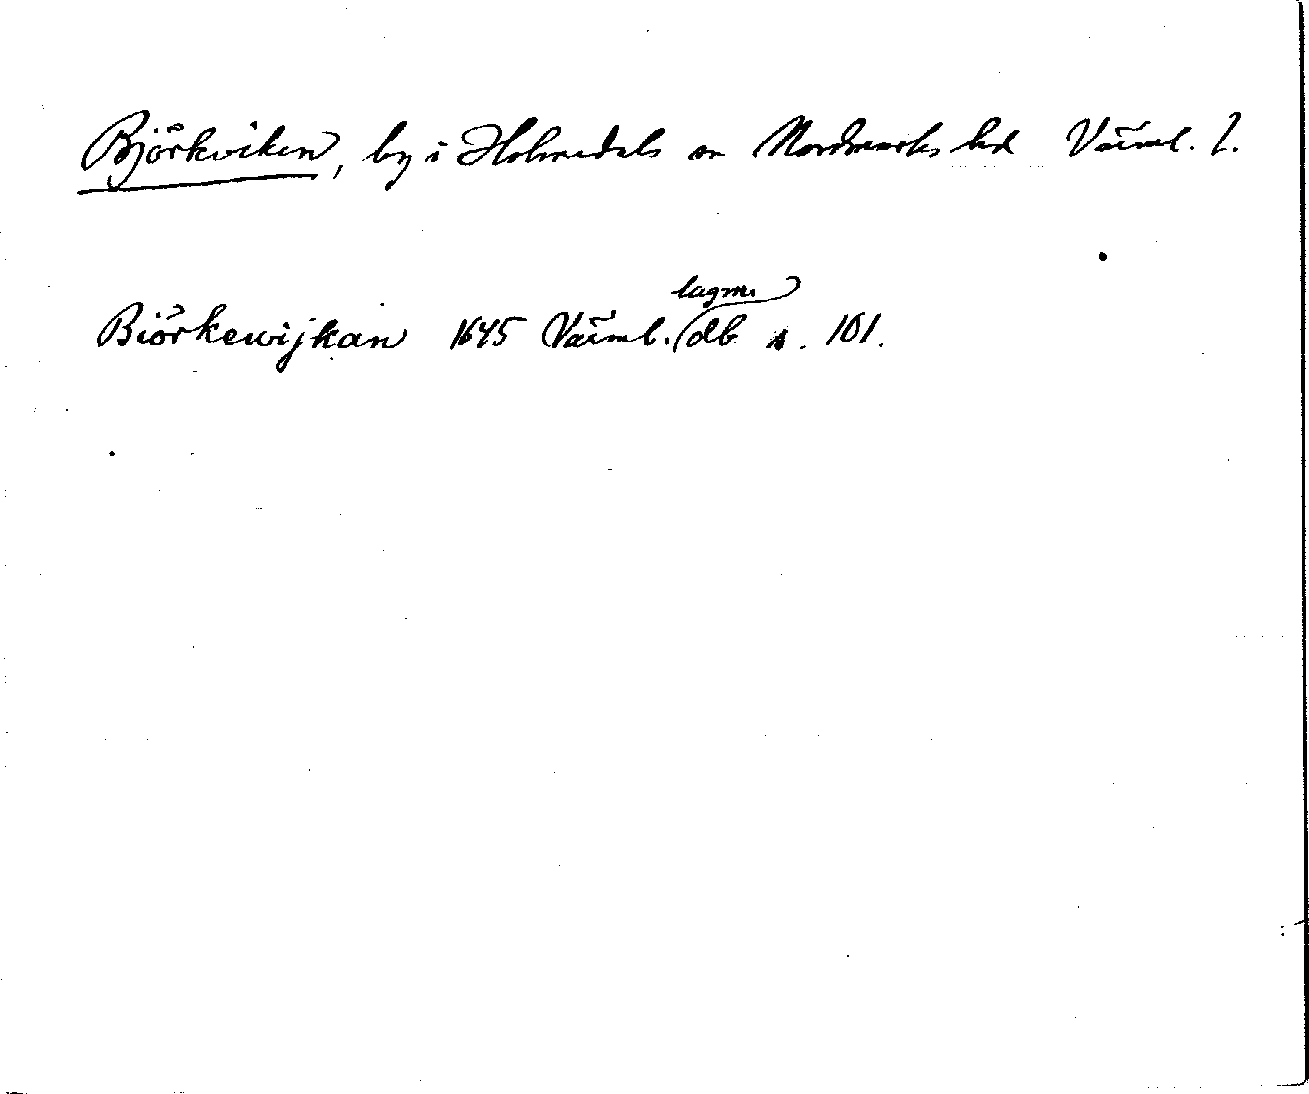 Björkviken, by i Holmedals sn Nordmarks hd Värml. l.
Biörkewijkan 1645 Värml. lagm. db s. 101.